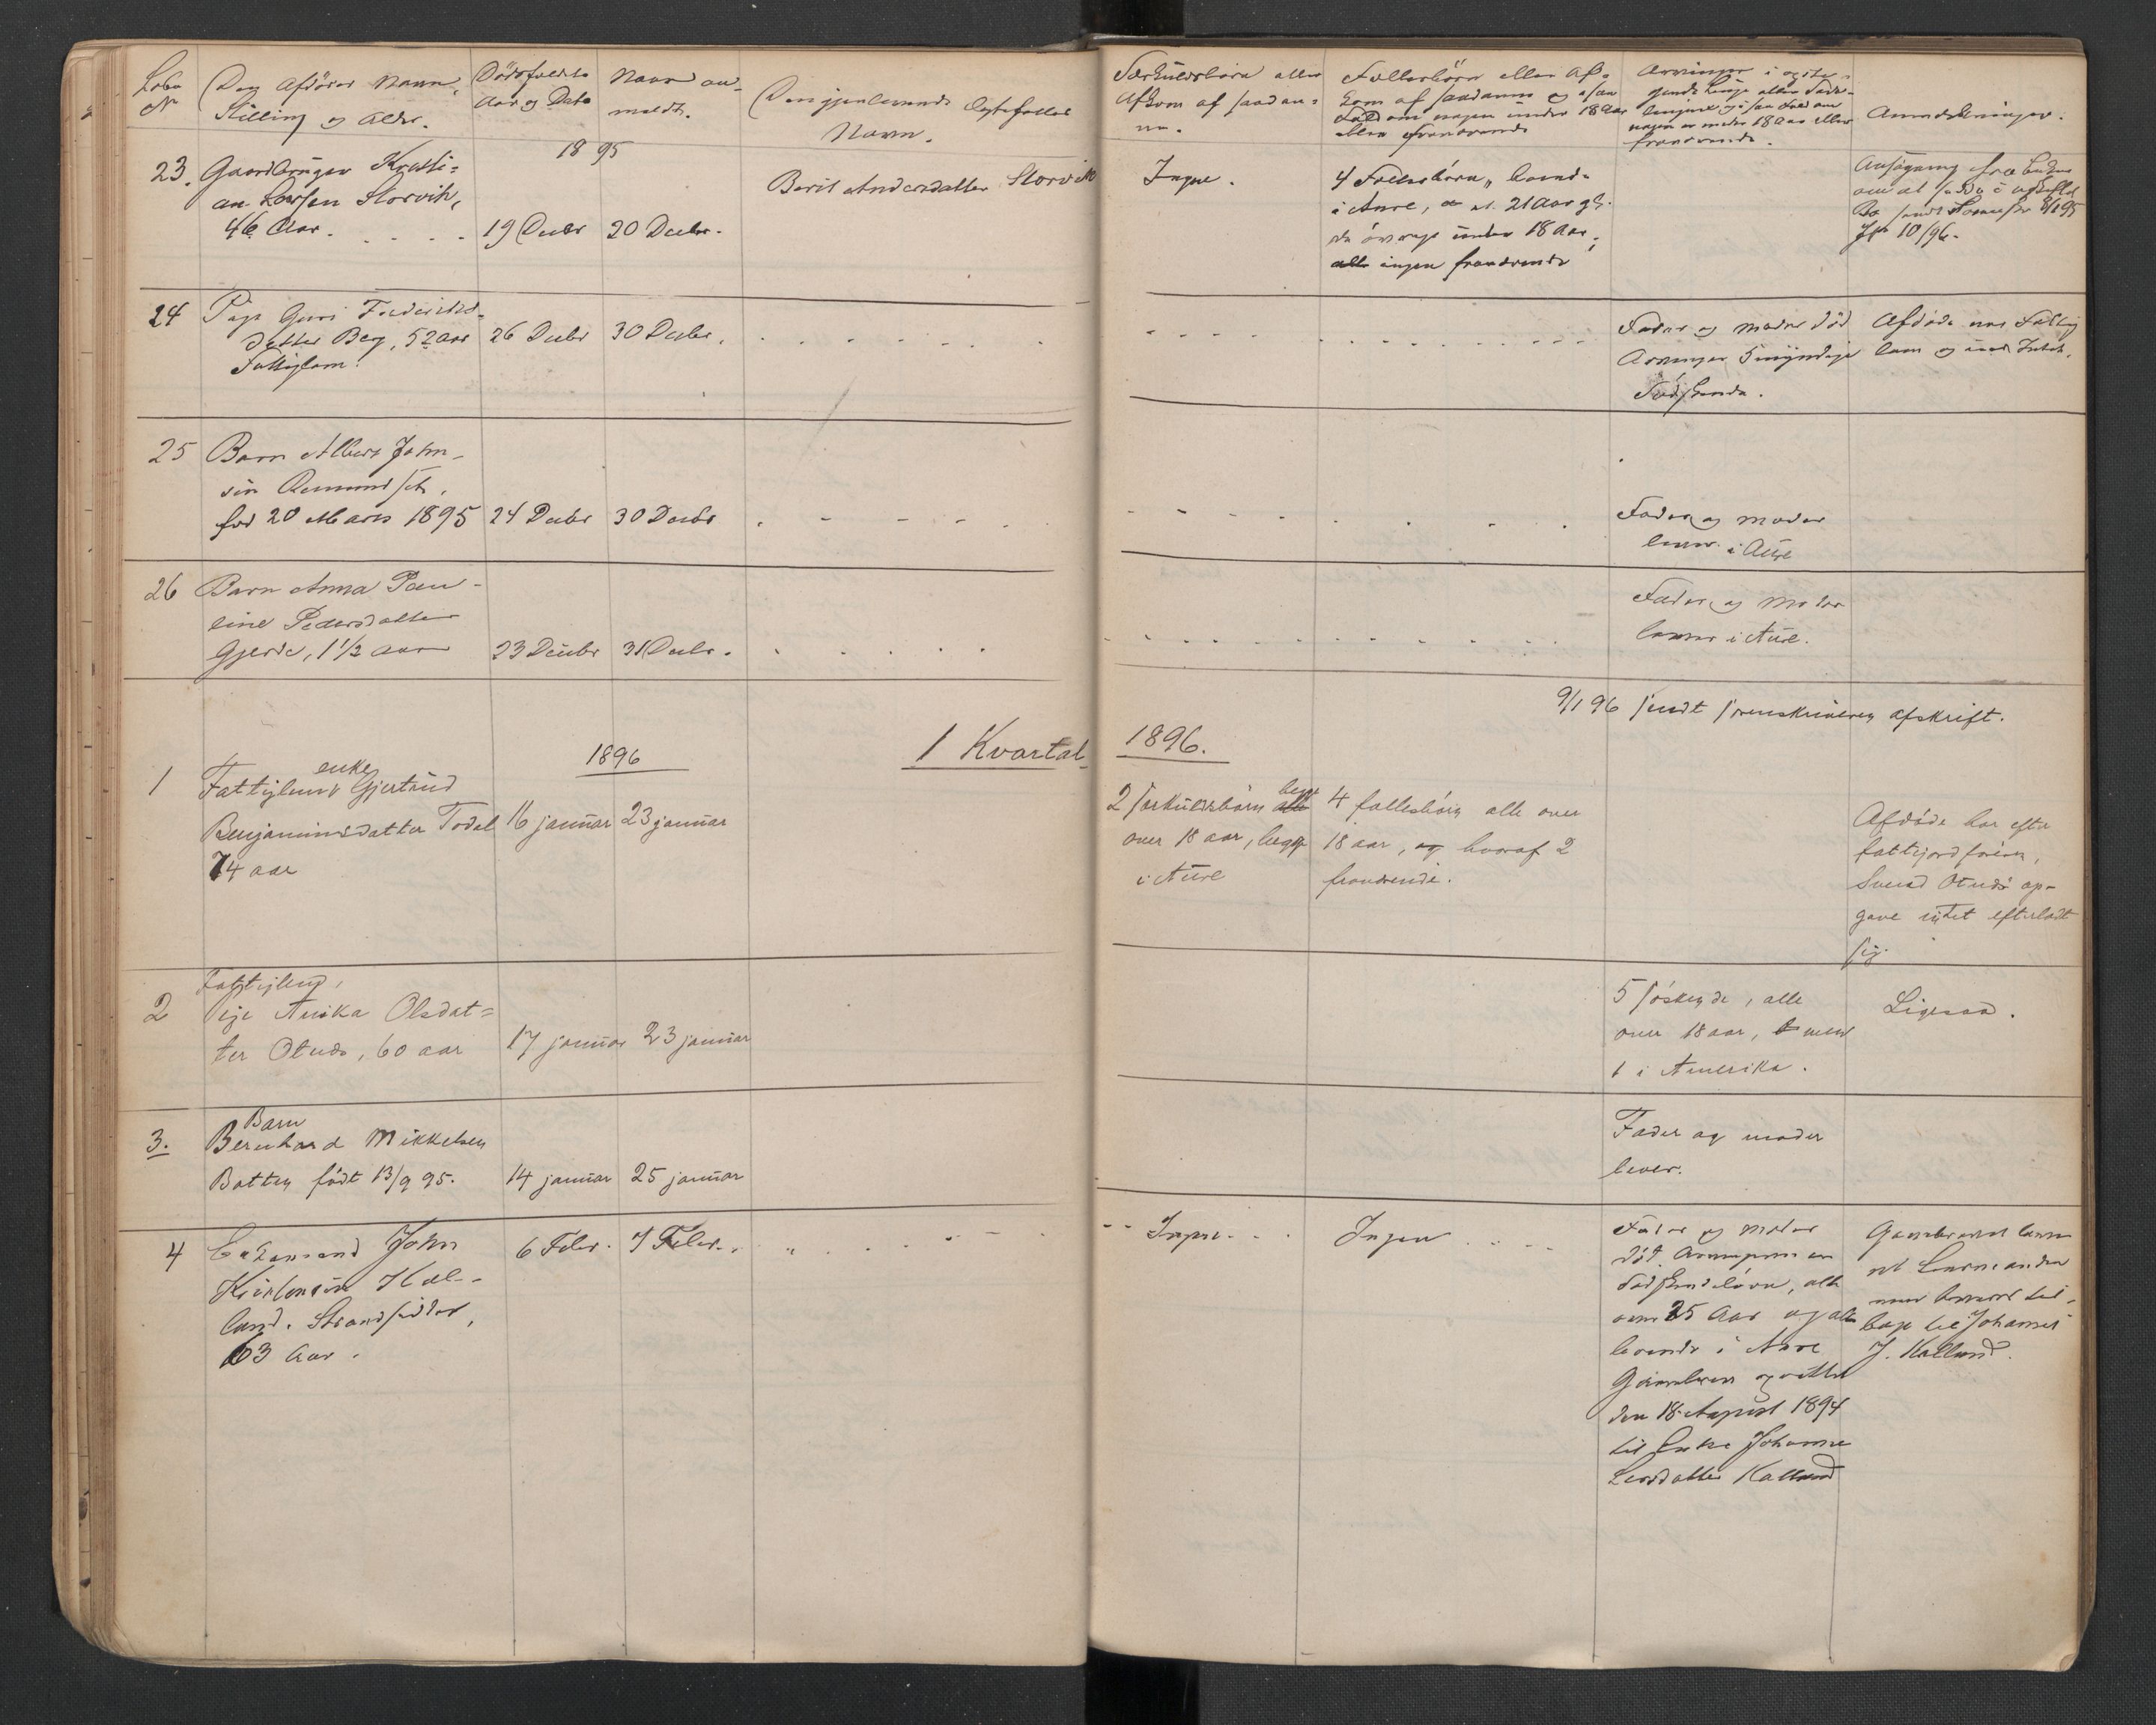 Löbe No
Den Afdödes Navn,
Stilling og Alder.
Dödsfaldets
Aar og Dato
Naar an-
meldt.
Den gjenlevende Ægtefælles
Navn.
Særkuldsbörn eller
Afkom af saadan-
ne.
Fællesbörn eller Af-
kom af saadanne og i saa
Fald om nogen under 18 Aar
eller fraværende
Arvinger i opsti-
gende Linje eller Side-
linjene og i saa Fald om
nogen er under 18 Aar eller
fraværende.
Anmærkninger.
1895
23. Gaardbruger Kristi-
an Larsen Storvik,
46 Aar.
19 Decbr 20 Decbr.
Berit Andersdatter Storvik
Ingen.
4 Fællesbörn, boende
i Aure, 21 Aar
de övrige under 18 Aar,
ingen fraværende
Ansögning fra Enken
om at sidde i uskiftet
Bo sendt 8/1 95
10/96.
24 Pige Guri Frederiks-
datter Berg, 52 Aar
Fattiglem.
26 Decbr 30 Decbr.
Fader og Moder död
Arvinger 5 myndige
Södskende.
Afdöde var Fattig
lem og Intet.
25 Barn Albert John-
sön Aamundset,
föd 20 Marts 1895 24 Decbr 30 Decbr
Fader og Moder
lever i Aure
26 Barn Anna Pau-
line Pedersdatter
Gjerde, 1 1/2 Aar 23 Decbr 31 Decbr.
Fader og Moder
lever i Aure.
9/1 96 sendt sorenskriveren afskrift.
1896
1 Kvartal
1896.
1 Fattiglem enke Gjertrud
Benjaminsdatter Todal 16 januar 23 januar
74 aar
2 særkuldsbörn begge
over 18 aar, begge
i Aure
4 fællesbörn alle over
18 aar, hvoraf 2
fraværende.
Afdöde har efter
fattigforstander,
Svend Otnes op-
gave intet efterladt
sig.
2 Fattiglem,
Pige Anika Olsdat-
ter Otnes, 60 aar 17 januar 23 januar
5 söskende, alle
over 18 aar, men
1 i Amerika.
Ligesaa.
3. Barn
Bernhard Mikkelsen
Botten födt 13/9 95. 14 januar 25 januar
Fader og moder
lever.
4 Enkemand John
Kristensön Kal-
land. Strandsidder,
63 Aar.
6 Febr. 7 Febr.
Ingen
Ingen
Fader og Moder
död. Arvingerne er
Södskendebörn, alle
over 25 Aar og alle
boende i Aure
Gavebrev oprettet
den 18 August 1894
til Enke Johanna
Larsdatter Kalland
Gavebrevet
tilbage til Johannes
J. Kalland.